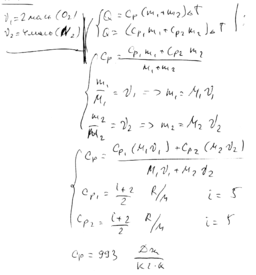 ν₁ = 2 моль (O₂)
ν₂ = 4 моль (N₂)
{ Q = Cp (m₁ + m₂) Δt
Q = (Cp₁ m₁ + Cp₂ m₂) Δt
Cp = (Cp₁ m₁ + Cp₂ m₂) / (m₁ + m₂)
m₁/M₁ = ν₁ => m₁ = M₁ ν₁
m₂/M₂ = ν₂ => m₂ = M₂ ν₂
Cp = (Cp₁ (M₁ ν₁) + Cp₂ (M₂ ν₂)) / (M₁ ν₁ + M₂ ν₂)
Cp₁ = (i+2)/2 R/M i = 5
Cp₂ = (i+2)/2 R/M i = 5
Cp = 993 Дж/кг·к